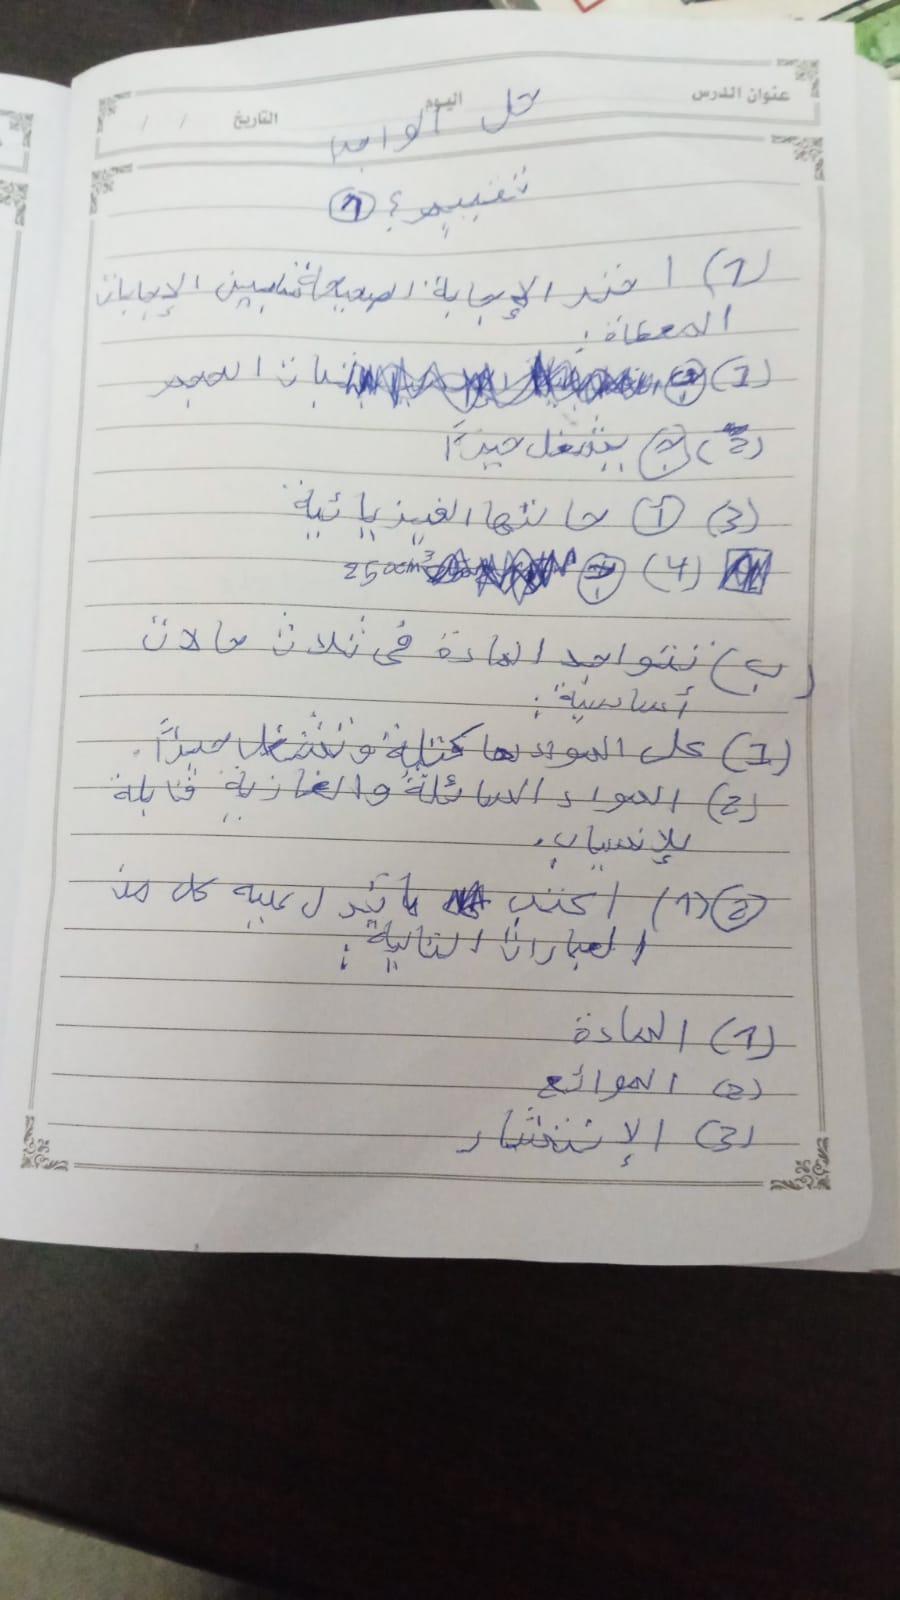 عنوان الدرس اليوم التاريخ / /
حل الواجب
تقييم ؟ ①
(1) اختر الإجابة الصحيحة بين الإجابات
المعطاة :
(1) ثبات الحجم
(2) يشغل حيزًا
(3) أ حالتها الفيزيائية
(4) 250cm³
(ب) تتواجد المادة في ثلاث حالات
أساسية :
(1) كل المواد لها كتلة وتشغل حيزًا.
(2) المواد السائلة والغازية قابلة
للإنسياب.
② (1) اكتب ما تدل عليه كل من
العبارات التالية :
(1) المادة
(2) الموائع
(3) الإنتشار